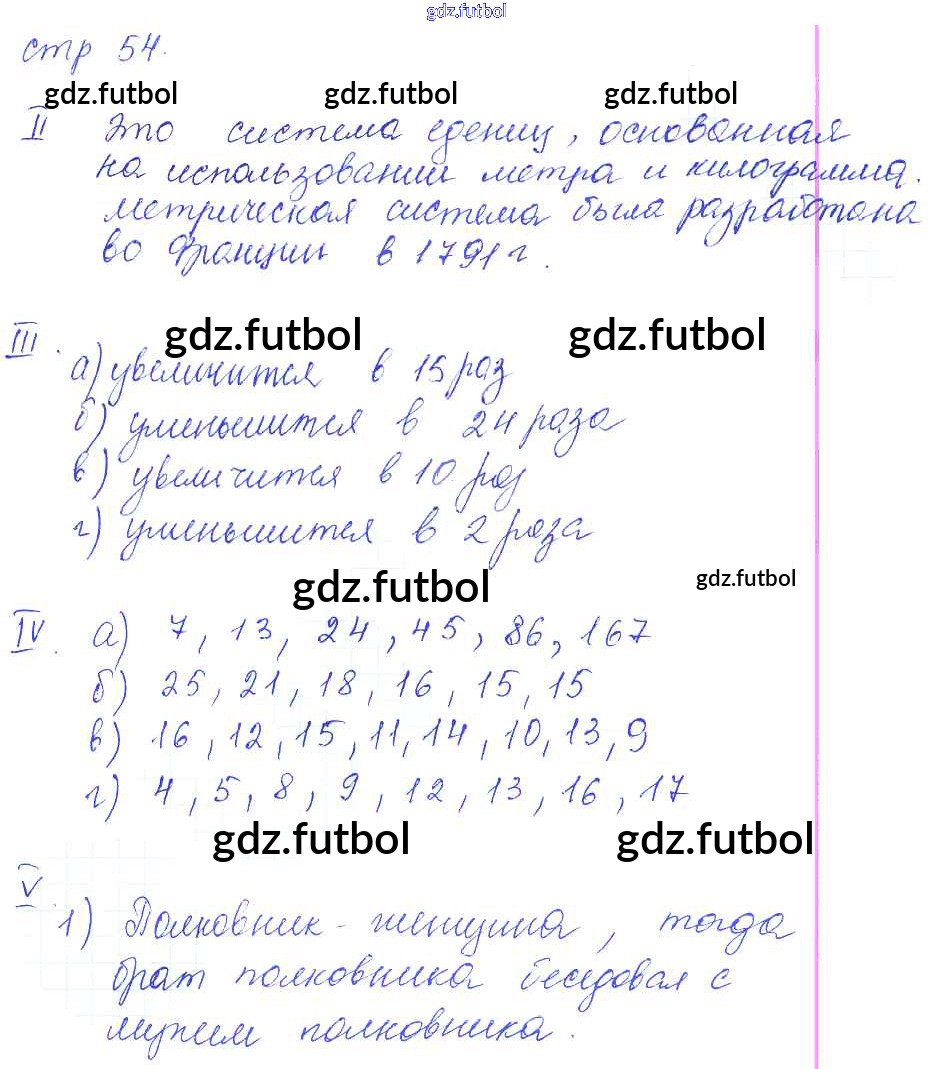 gdz.futbol
стр 54.
gdz.futbol gdz.futbol gdz.futbol
II Это система едениц, основанная
на использовании метра и килограмма.
Метрическая система была разработана
во Франции в 1791 г.
gdz.futbol gdz.futbol
III.
а) увеличится в 15 раз
б) уменьшится в 24 раза
в) увеличится в 10 раз
г) уменьшится в 2 раза
gdz.futbol gdz.futbol
IV. а) 7, 13, 24, 45, 86, 167
б) 25, 21, 18, 16, 15, 15
в) 16, 12, 15, 11, 14, 10, 13, 9
г) 4, 5, 8, 9, 12, 13, 16, 17
gdz.futbol gdz.futbol
V
1) Полковник - женщина, тогда
брат полковника беседовал с
мужем полковника.